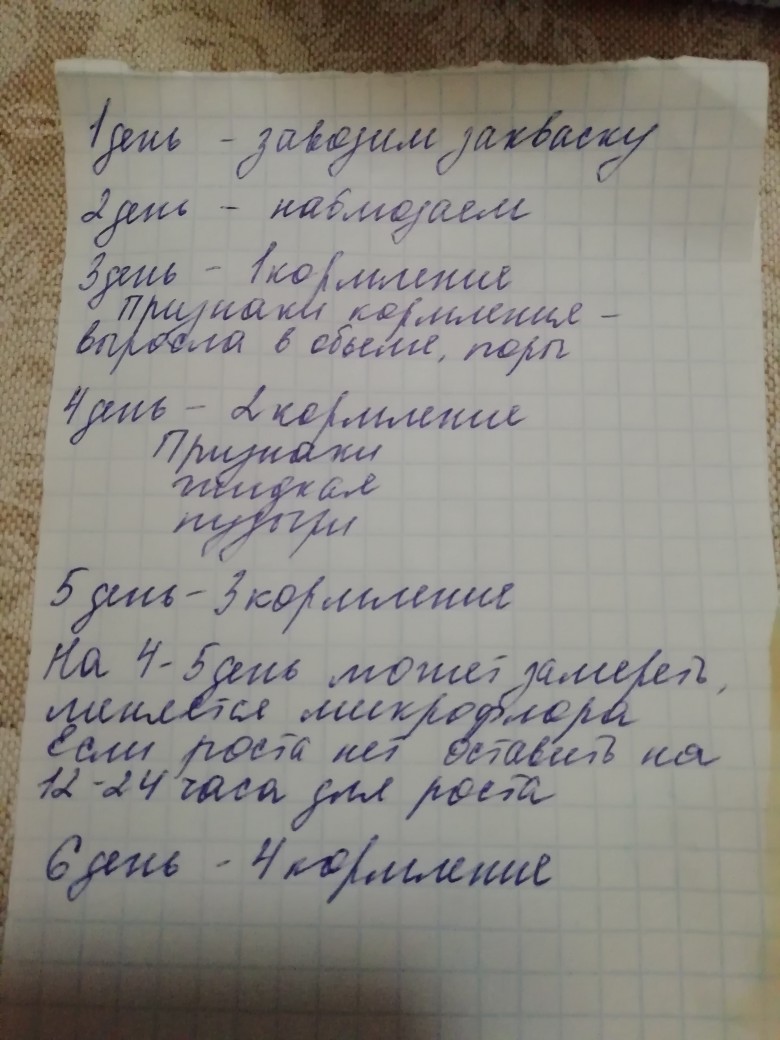 1 день - заводим закваску
2 день - наблюдаем
3 день - 1 кормление
Признаки кормления -
выросла в объеме, поры
4 день - 2 кормление
Признаки
жидкая
пузыри
5 день - 3 кормление
На 4-5 день может замереть,
меняется микрофлора
Если роста нет оставить на
12-24 часа для роста
6 день - 4 кормление